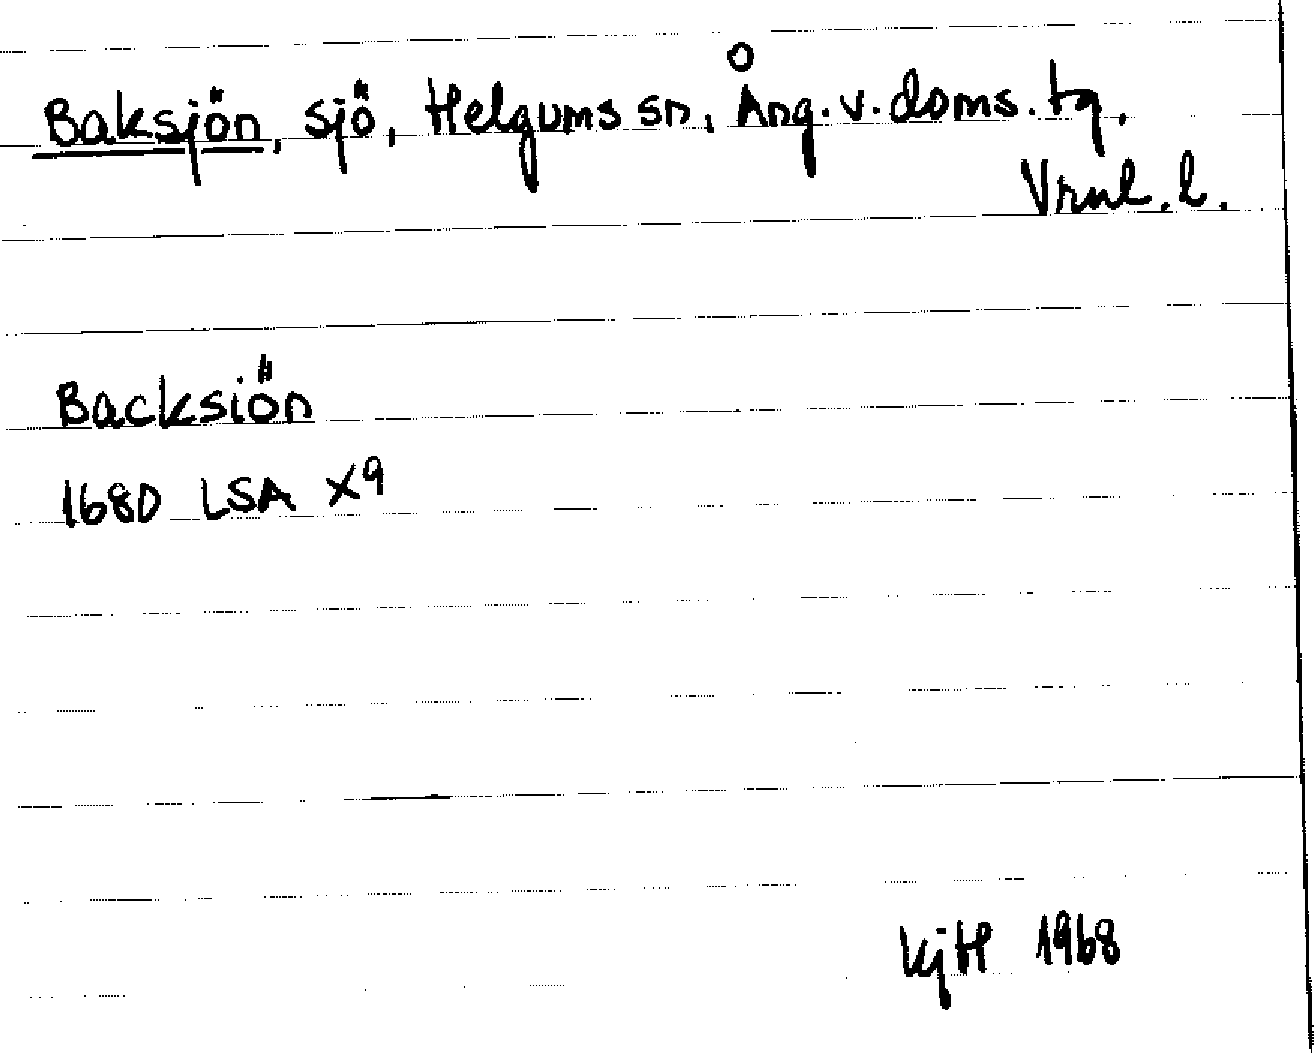 Baksjön, sjö, Helgums sn, Ång. v. doms. tg,
Vrnl. l.
Backsiön
1680 LSA X9
KjH 1968